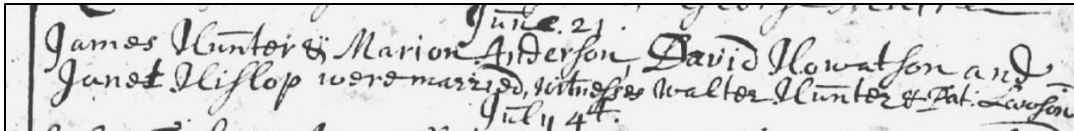 June. 21.
James Hunter & Marion Anderson, David Howatson and
Janet Hislop were married, witnesses Walter Hunter & Pat: Lawson
July 4t.